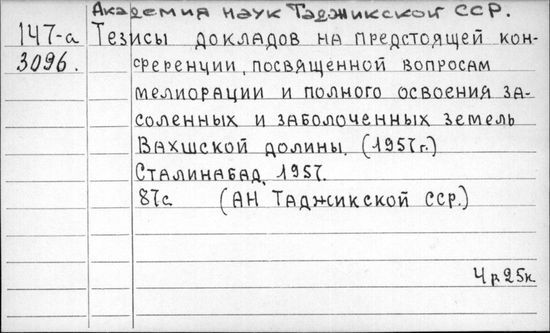 Академия наук Таджикской ССР.
147-а Тезисы докладов на предстоящей кон-
3096. ференции, посвященной вопросам
мелиорации и полного освоения за-
соленных и заболоченных земель
Вахшской долины. (1957г.)
Сталинабад, 1957.
87с. (АН Таджикской ССР.)
4р25к